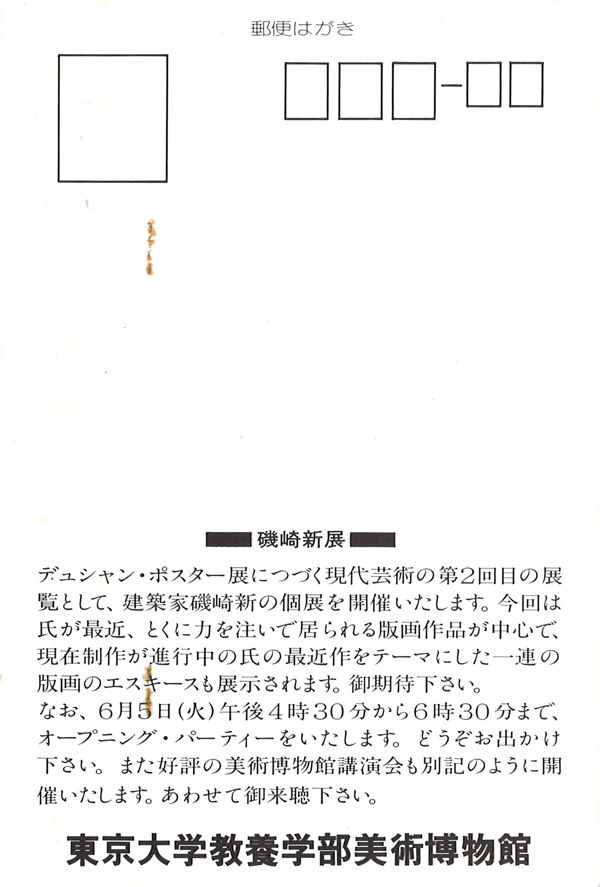 郵便はがき
磯崎新展
デュシャン・ポスター展につづく現代芸術の第2回目の展
覧として、建築家磯崎新の個展を開催いたします。今回は
氏が最近、とくに力を注いで居られる版画作品が中心で、
現在制作が進行中の氏の最近作をテーマにした一連の
版画のエスキースも展示されます。御期待下さい。
なお、6月5日(火)午後4時30分から6時30分まで、
オープニング・パーティーをいたします。どうぞお出かけ
下さい。また好評の美術博物館講演会も別記のように開
催いたします。あわせて御来聴下さい。
東京大学教養学部美術博物館